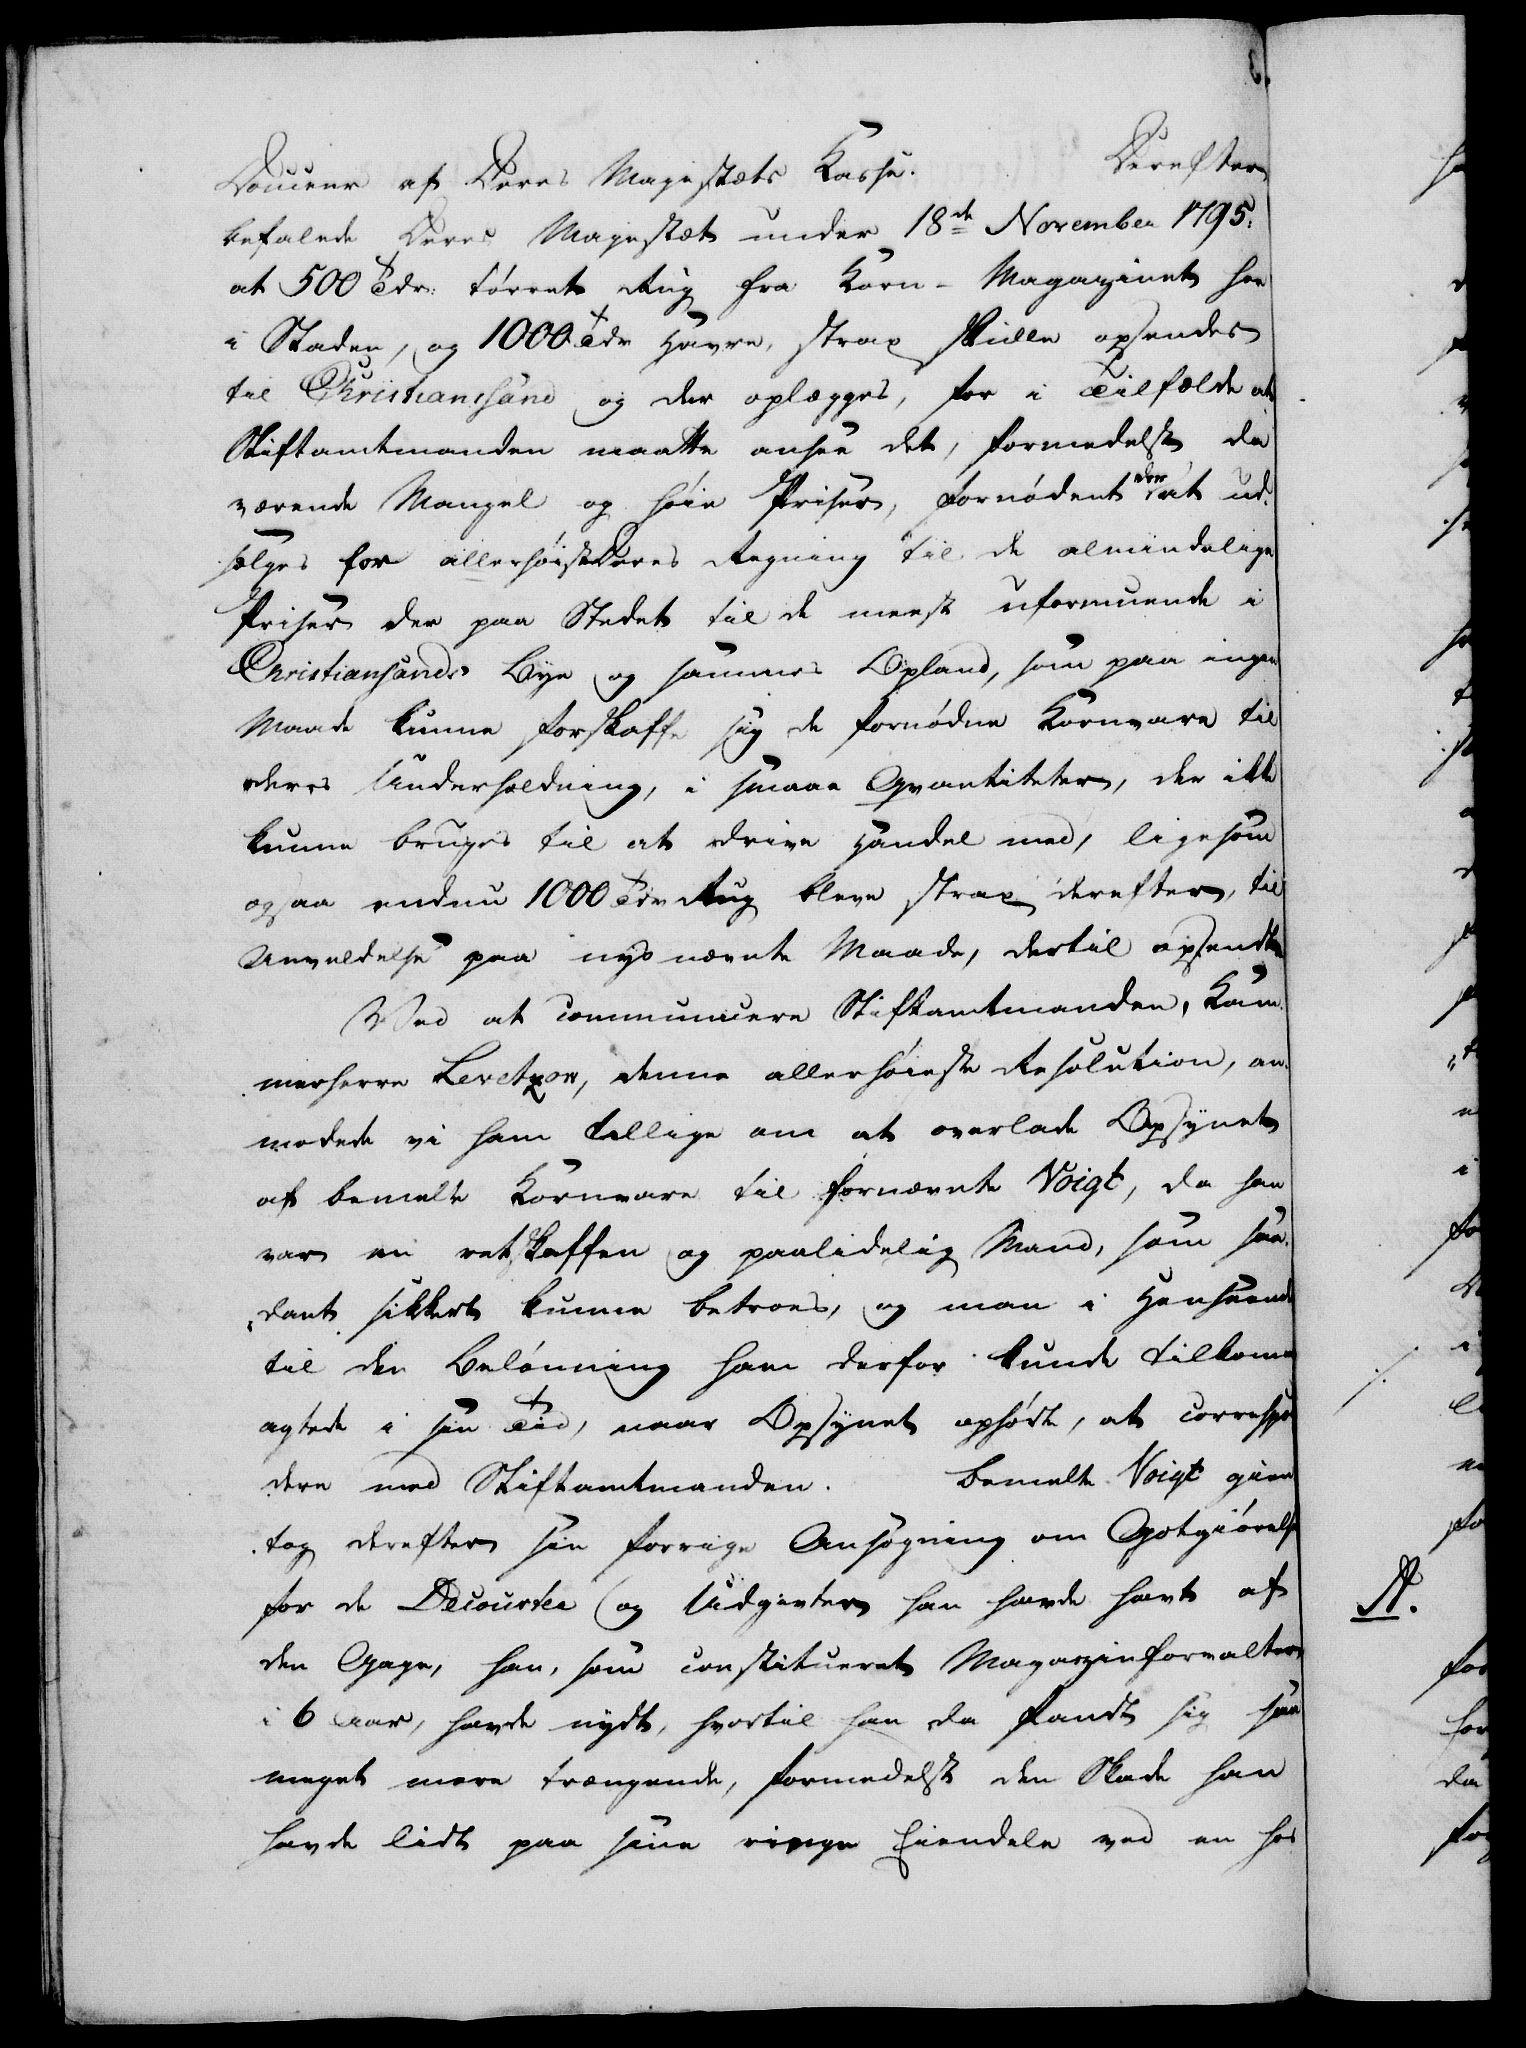 Douceur af Deres Majestæts Kasse. Derefter
befalede Deres Majestæt under 18de November 1795.
at 500 Tdr: tørret Rug fra Korn-Magazinet her
i Staden, og 1000 Tdr Havre, strax skulle opsendes
til Christianssand og der oplægges, for i Tilfælde at
Stiftamtmanden maatte ansee det, formedelst da
værende Mangel og høie Priser, fornødent der at ud-
sælges for allerhøistDeres Regning til de almindelige
Priser der paa Stedet til de meest uformuende i
Christiansands Bye og sammes Opland, som paa ingen
Maade kunne forskaffe sig de fornødne Kornvare til
deres Underholdning, i smaae Qvantiteter, der ikke
kunne bruges til at drive Handel med, ligesom
ogsaa endnu 1000 Tdr Rug bleve strax derefter, til
Anvendelse paa nys nævnte Maade, dertil opsendte
Ved at communicere Stiftamtmanden, Kam-
merherre Levetzow, denne allerhøieste Resolution, an-
modede vi ham tillige om at overlade Opsynet
af bemelte Kornvare til fornævnte Voigt, da han
var en retskaffen og paalidelig Mand, som saa-
dant sikkert kunne betroes, og man i Henseende
til den Belønning ham derfor kunde tilkomme
agtede i sin Tid, naar Opsynet ophørte, at correspon
dere med Stiftamtmanden. Bemelte Voigt gien
tog derefter sin forrige Ansøgning om Godtgiørelse
for de Decourter og Udgivter han havde havt af
den Gage, han, som constitueret Magazinforvalter
i 6 Aar, havde nydt, hvortil han da fandt sig saa
meget mere trængende, formedelst den Skade han
havde lidt paa sine ringe Eiendele ved en hos
A.